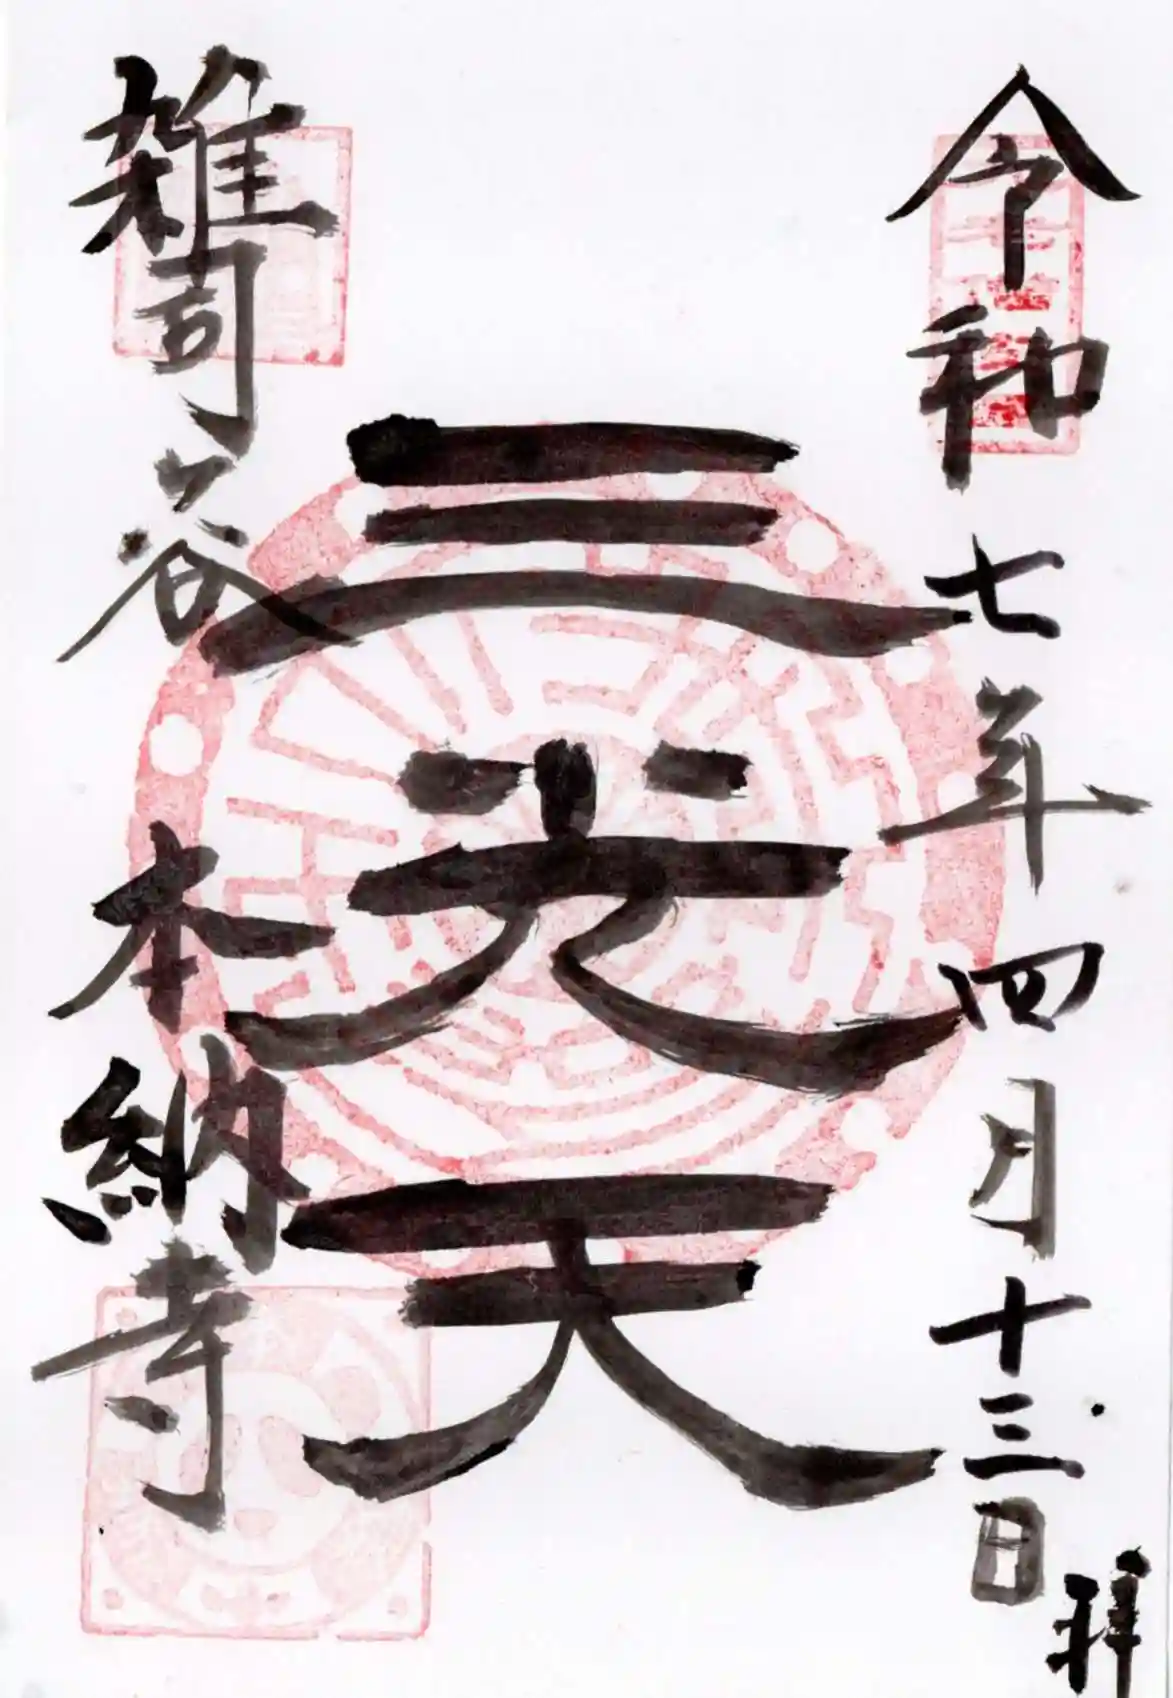 令和七年四月十三日 拝
三光天
雑司ヶ谷 本納寺